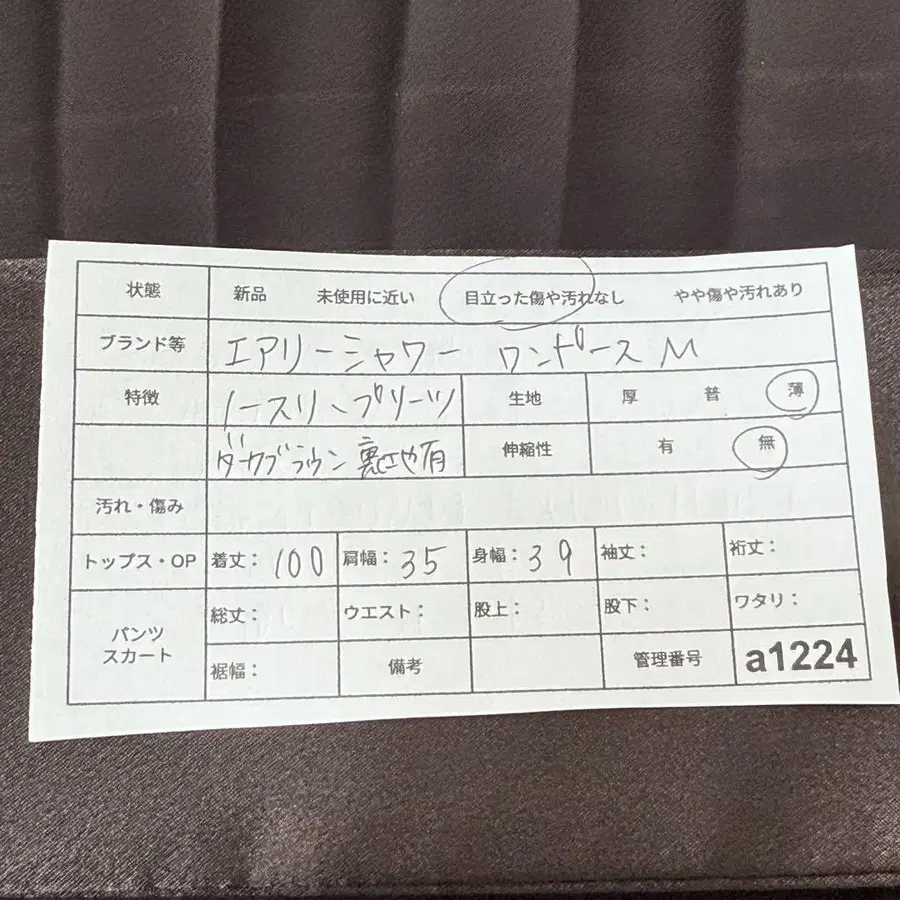 状態 新品 未使用に近い 目立った傷や汚れなし やや傷や汚れあり
ブランド等 エアリーシャワー ワンピース M
特徴 ノースリ、プリーツ 生地 厚 普 薄
ダークブラウン 裏地有 伸縮性 有 無
汚れ・傷み
トップス・OP 着丈: 100 肩幅: 35 身幅: 39 袖丈: 裄丈:
パンツ スカート 総丈: ウエスト: 股上: 股下: ワタリ:
裾幅: 備考 管理番号 a1224